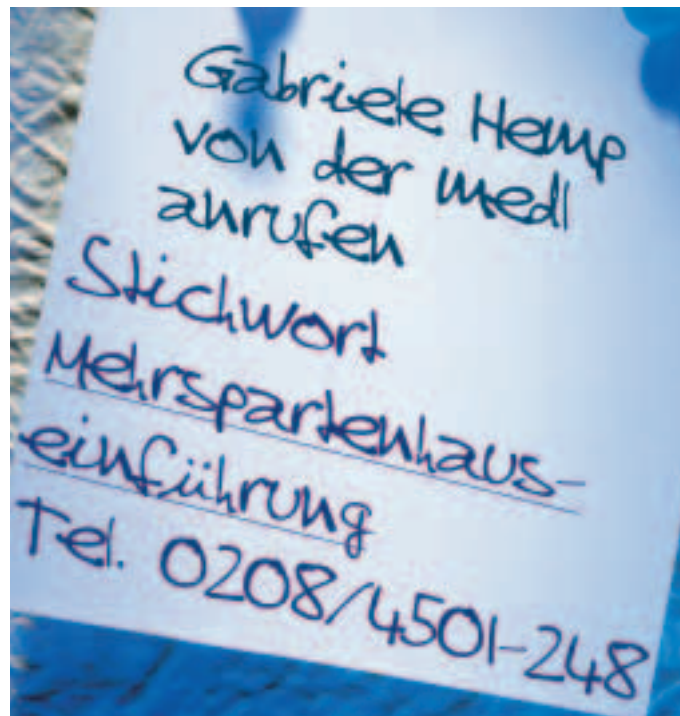 Gabriele Hemp
von der medl
anrufen
Stichwort
Mehrspartenhaus-
einführung
Tel. 0208/4501-248